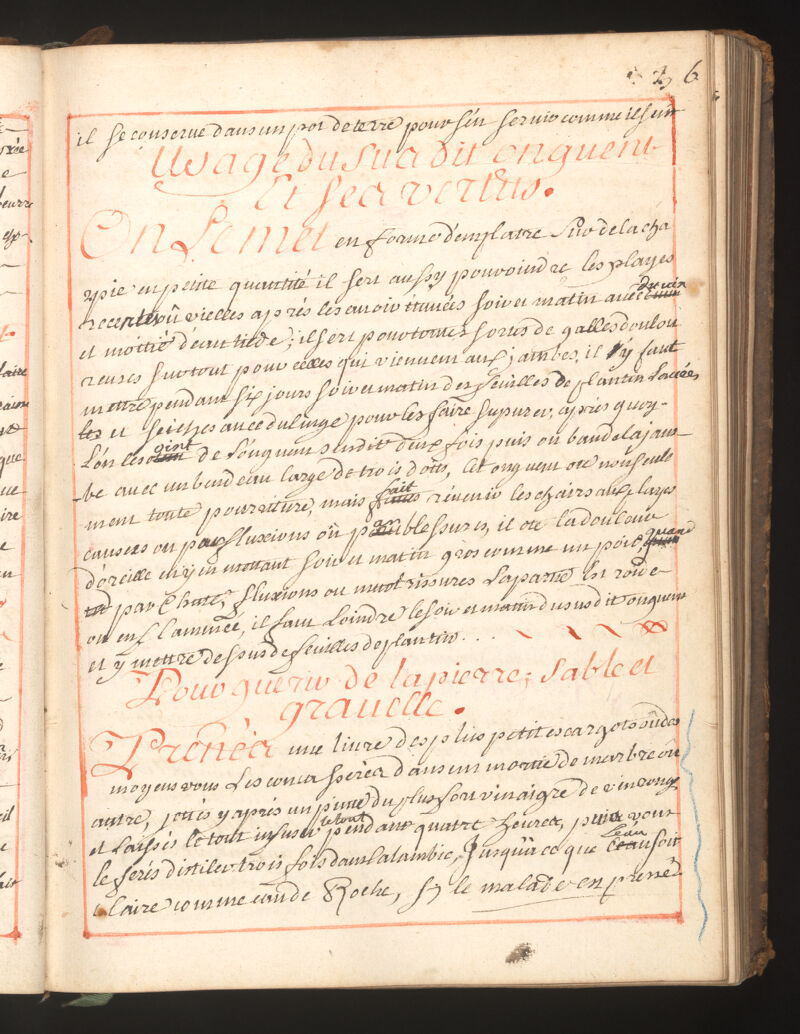 26
il se conserue dans un pot de terre pour s'én seruir comme il sui
Usage du Susdit onguent
Et ses vertus.
On Le met en forme d'emplatre sur de la cha
rpie en petite quantité il sert aussy pour oindre les playes
recentes oû vielles aprés les auoir étuuées soir et matin auec du vin
et moitié d'eau tiede; il sert pour toutes sortes de galles doulou
reuses surtout pour celles qui viennent aux jambes, il y faut
mettre pendant six jours soir et matin des feuilles de plantin
et seiches auec du linge pour les faire supurer, aprés quoy
L'on les oint de L'onguent susdit deux fois puis on bande la jam
be auec un bandeau large de trois doits, Cet onguent ote non seule
ment toute pouriture, mais fait réuenir les chairs aux playes
causées ou par fluxions oû par blessures, il ote la douleur
d'oreille en y en mettant soir et matin gros comme un pois, quand
par Chute, fluxions ou meurtrissures La partie Est roide
ou enflammée, il faut L'oindre le soir et matin du susdit onguent
et y mettre dessus des feuilles de plantin . . .
Pour guerir de la pierre; sable et
grauelle.
Prenés une liure des plus petits escargots oû des
moyens vous Les concasserés dans un mortié de marbre oû
autre, jettés y aprés un pinte du plus fort vinaigre de vin rouge
et Laissés le tout infuser le tout pendant quatre heures, puis vous
le ferés distiler trois fois dans l'alambic, Jusqu'à ce que L'eau soit
Claire comme eau de Roche, sy le malade en prend